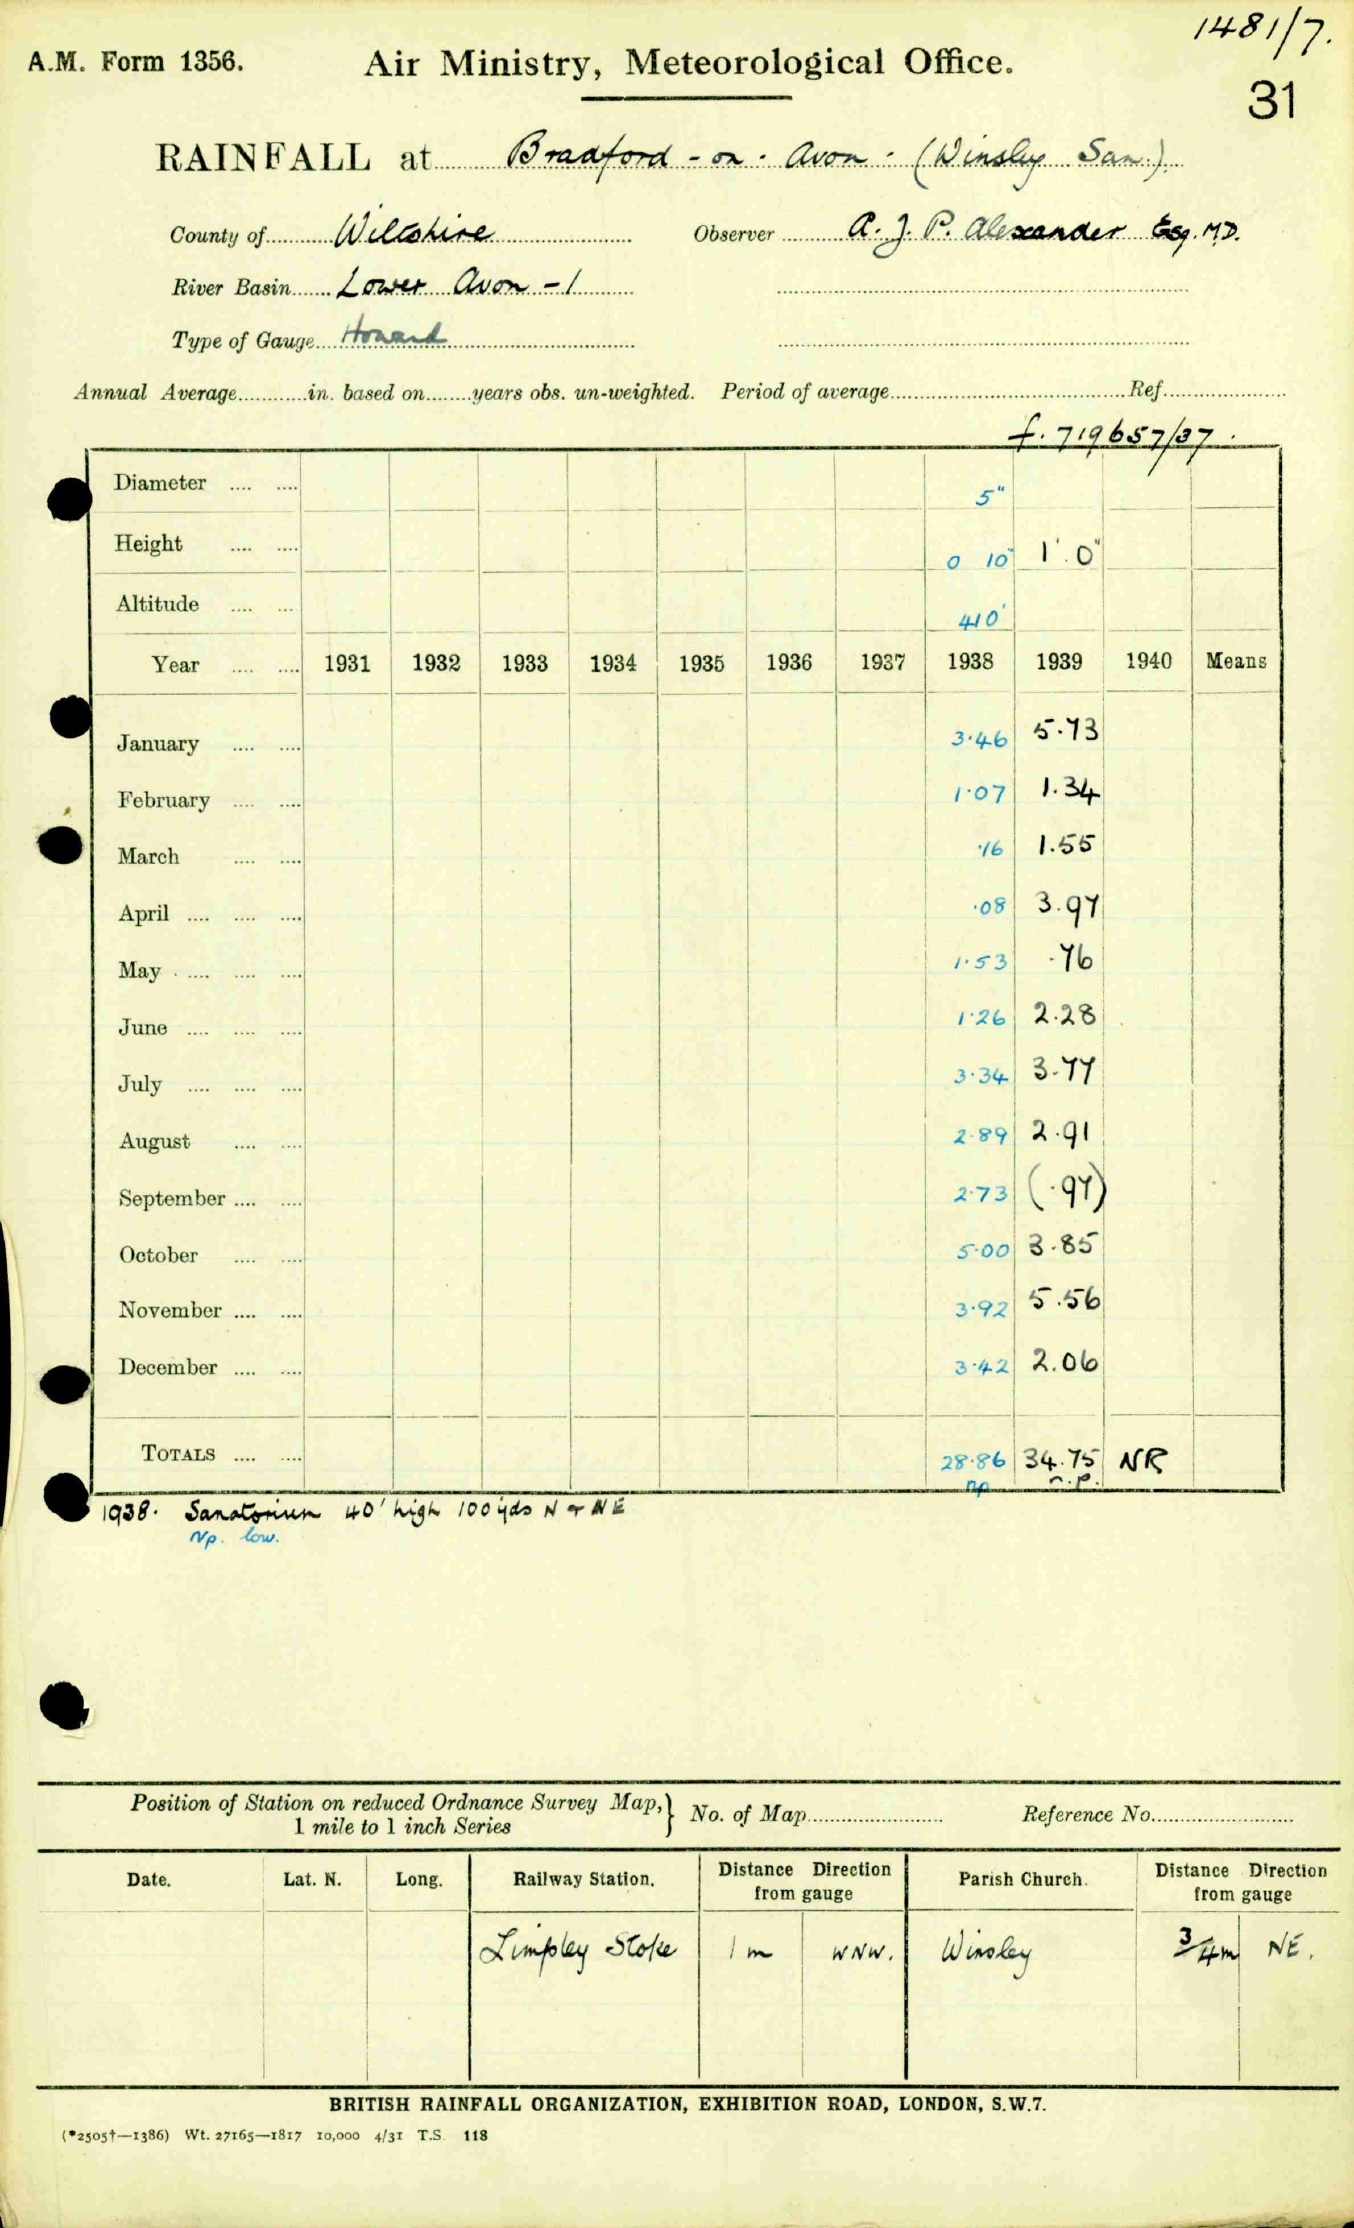 1481/7.
A.M. Form 1356. Air Ministry, Meteorological Office.
31
RAINFALL at Bradford-on-Avon. (Winsley San.)
County of Wiltshire Observer A. J. P. Alexander Esq. M.D.
River Basin Lower Avon - 1
Type of Gauge Howard
Annual Average in. based on years obs. un-weighted. Period of average Ref
f. 719657/37.
Diameter 5"
Height 0 10" 1'.0"
Altitude 410'
Year 1931 1932 1933 1934 1935 1936 1937 1938 1939 1940 Means
January 3.46 5.73
February 1.07 1.34
March .16 1.55
April .08 3.97
May 1.53 .76
June 1.26 2.28
July 3.34 3.77
August 2.89 2.91
September 2.73 (.97)
October 5.00 3.85
November 3.92 5.56
December 3.42 2.06
TOTALS 28.86 34.75 NR
np n.p.
1938. Sanatorium 40' high 100yds N + NE
Np. low.
Position of Station on reduced Ordnance Survey Map,} No. of Map Reference No.
1 mile to 1 inch Series
Date. Lat. N. Long. Railway Station. Distance Direction from gauge Parish Church. Distance Direction from gauge
Limpley Stoke 1 m WNW. Winsley 3/4m NE.
BRITISH RAINFALL ORGANIZATION, EXHIBITION ROAD, LONDON, S.W.7.
(*2505†—1386) Wt. 27165—1817 10,000 4/31 T.S. 118